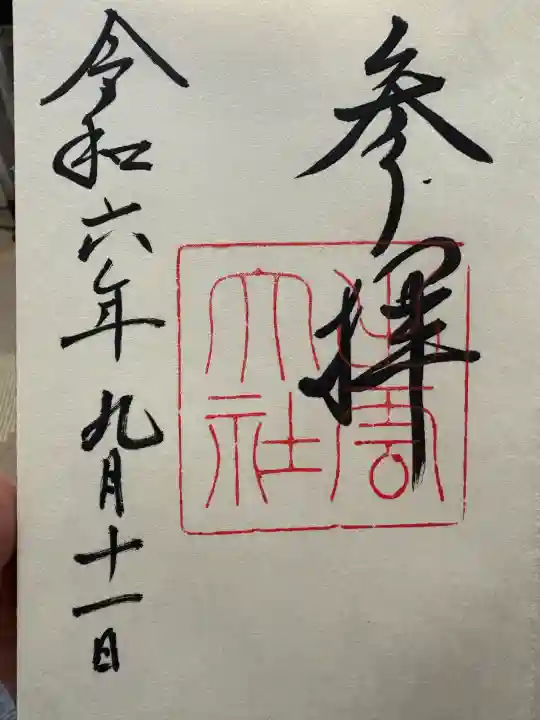 参拝
出雲
大社
令和六年九月十一日